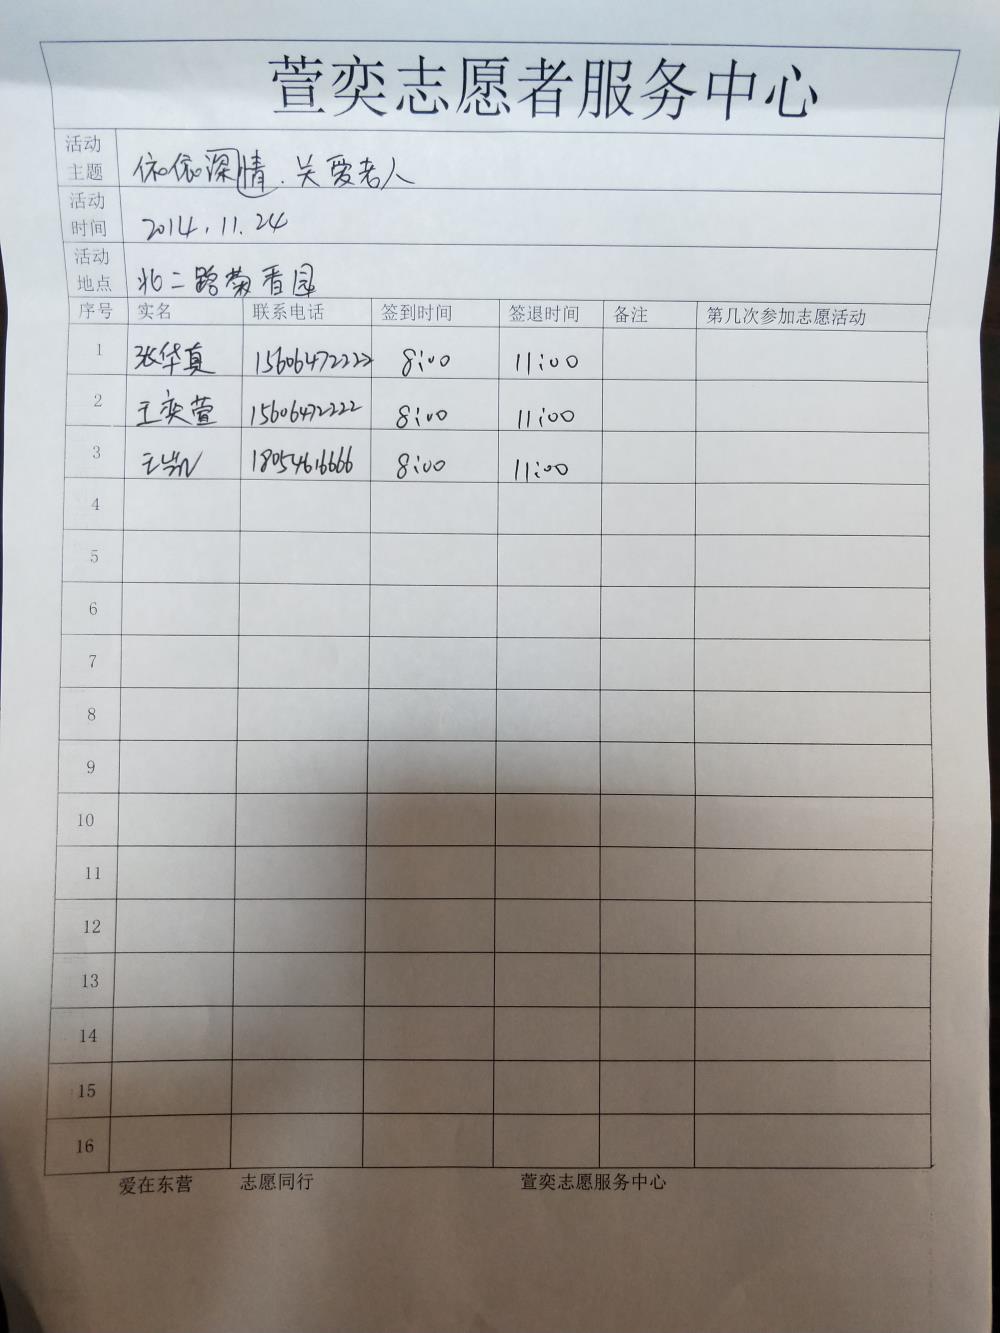 萱奕志愿者服务中心
活动主题 依依深情.关爱老人
活动时间 2014.11.24
活动地点 北二路菊香园
序号 实名 联系电话 签到时间 签退时间 备注 第几次参加志愿活动
1 张华真 15606472222 8:00 11:00
2 王奕萱 15606472222 8:00 11:00
3 王 18054616666 8:00 11:00
4
5
6
7
8
9
10
11
12
13
14
15
16
爱在东营 志愿同行 萱奕志愿服务中心